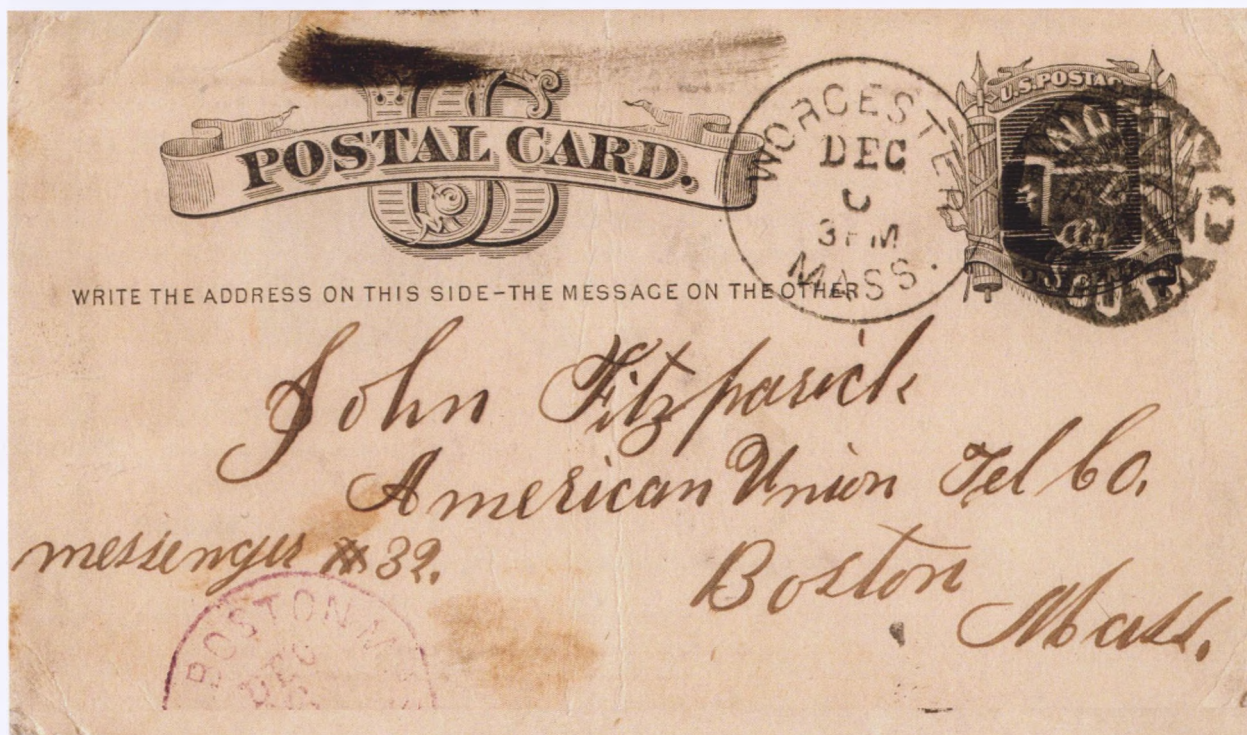 US
POSTAL CARD.
WORCESTER
DEC
3PM
MASS.
U.S. POSTAGE
ONE CENT
WRITE THE ADDRESS ON THIS SIDE–THE MESSAGE ON THE OTHER
John Fitzparick
American Union Tel Co.
messenger # 32.
Boston
Mass.
BOSTON M
DEC